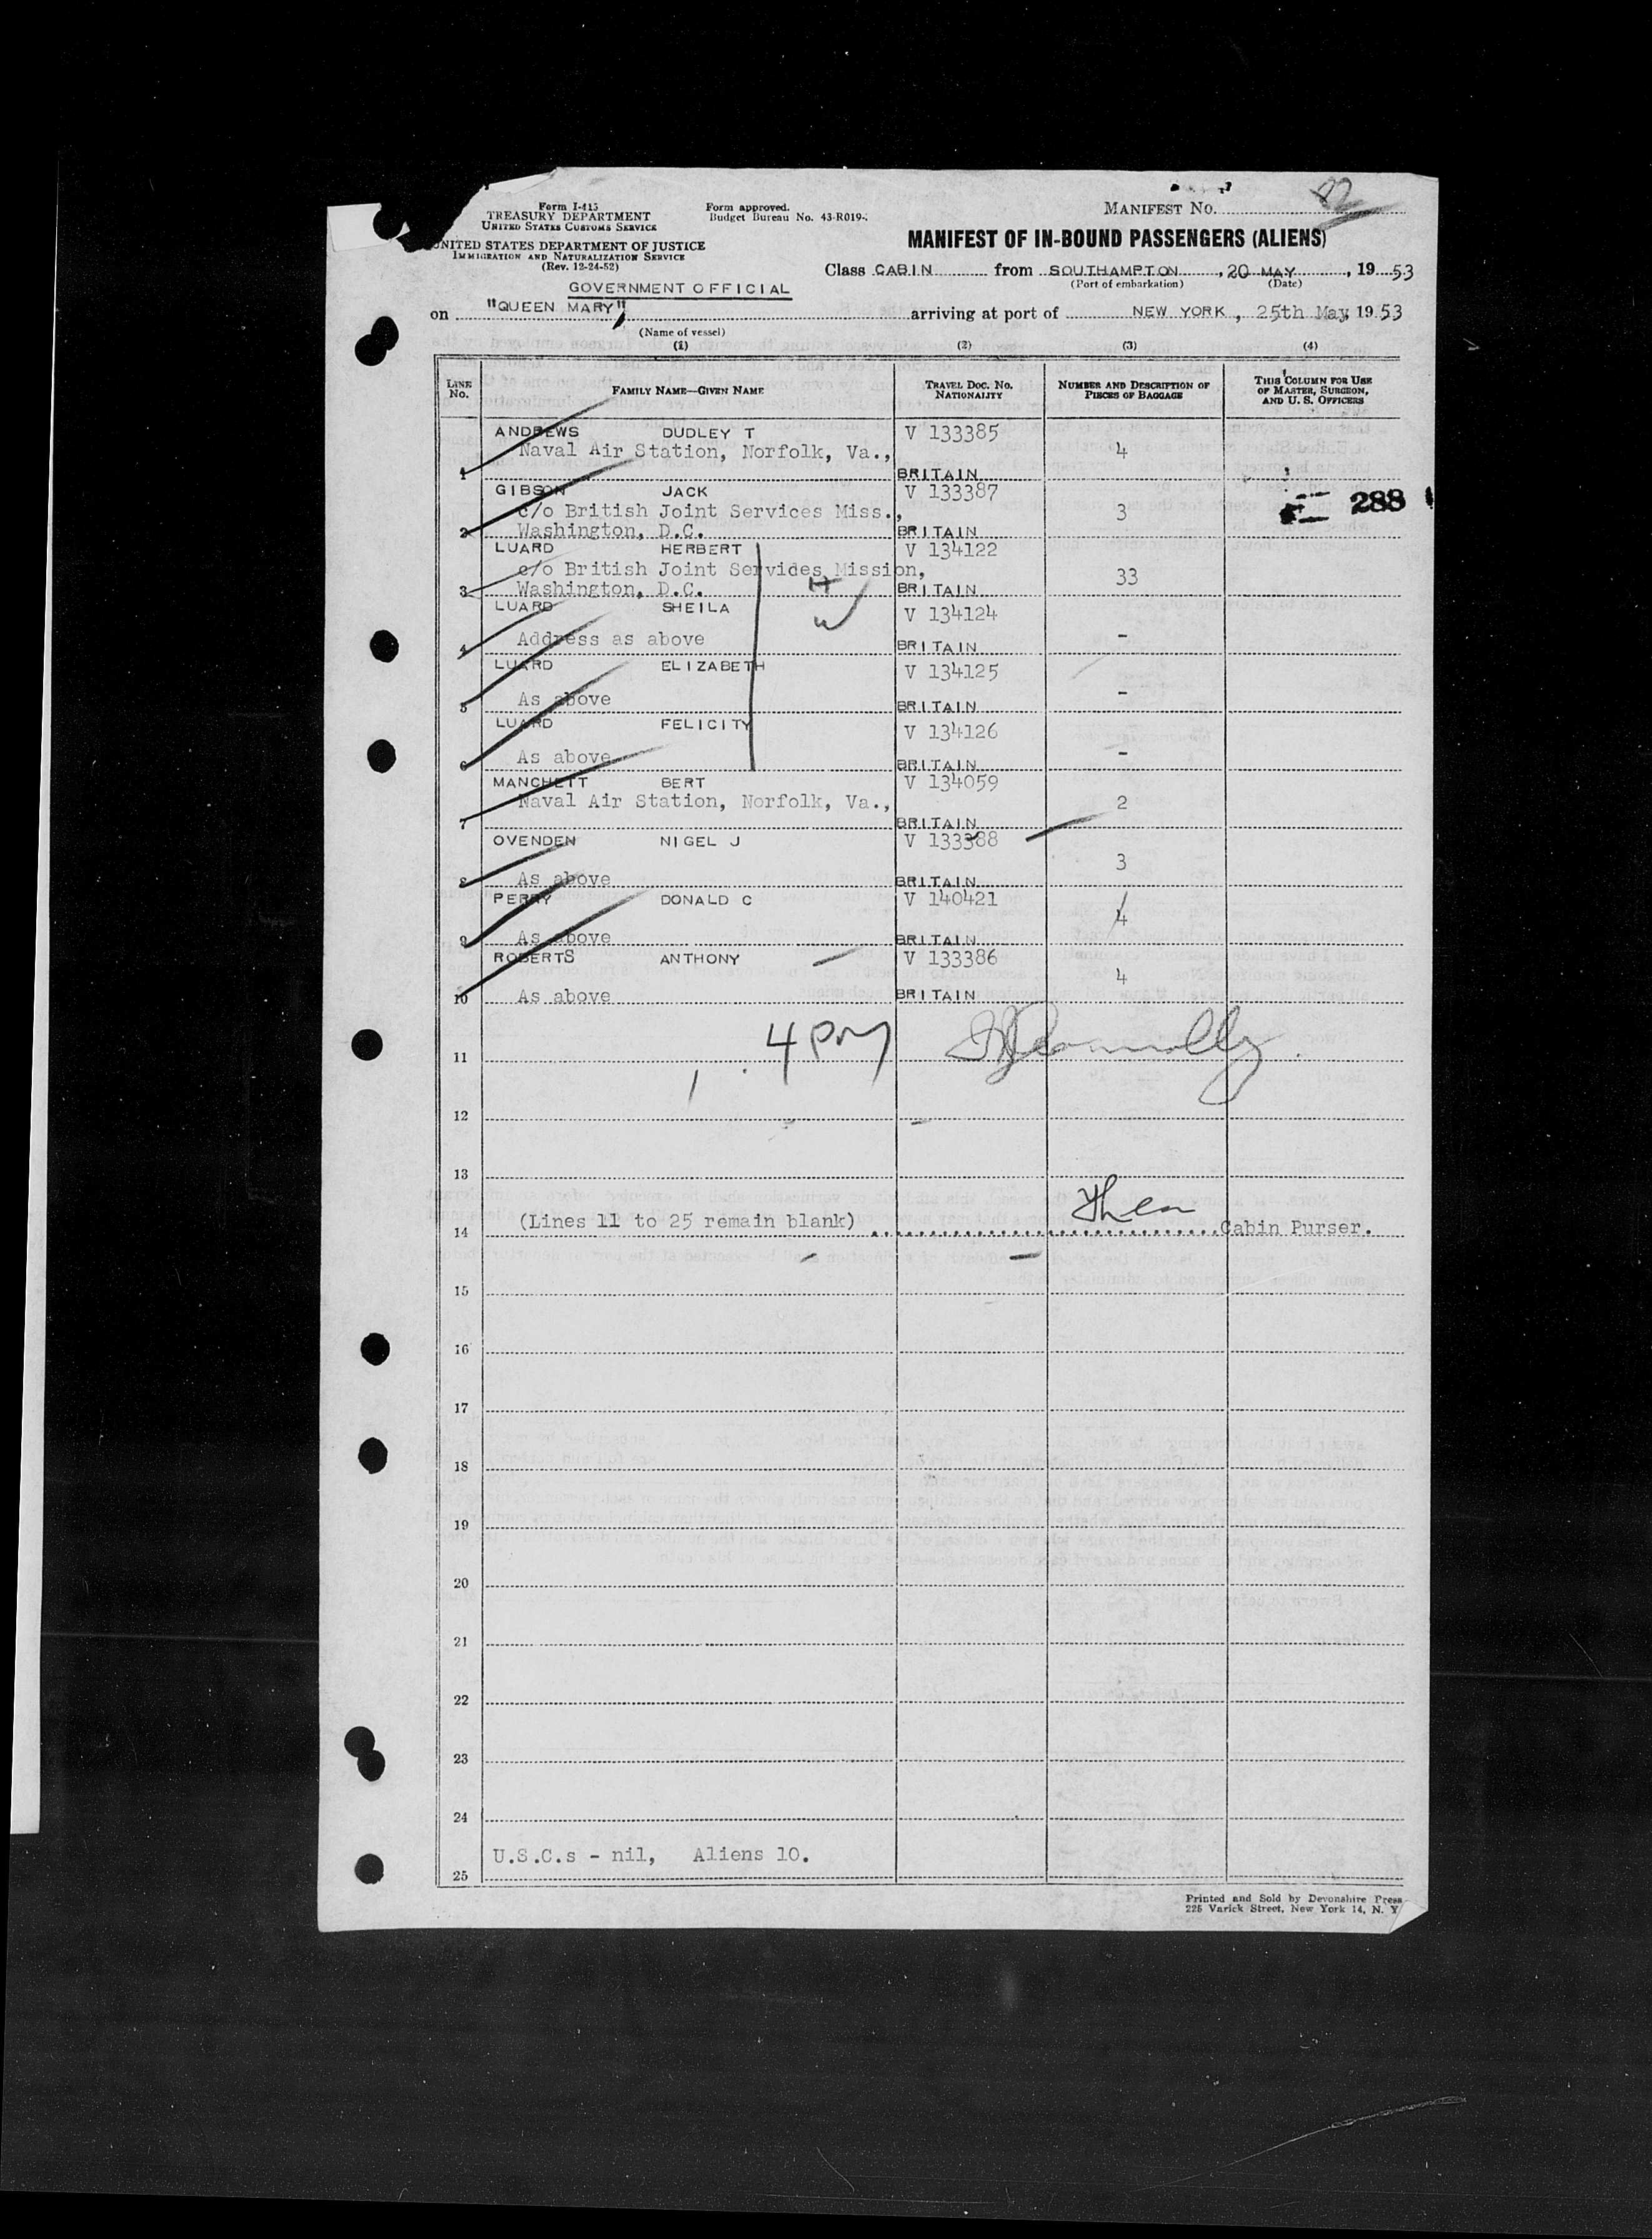 Form I-415
TREASURY DEPARTMENT
UNITED STATES CUSTOMS SERVICE
Form approved.
Budget Bureau No. 43-R019-
MANIFEST NO. 82
UNITED STATES DEPARTMENT OF JUSTICE
IMMIGRATION AND NATURALIZATION SERVICE
(Rev. 12-24-52)
MANIFEST OF IN-BOUND PASSENGERS (ALIENS)
Class CABIN from SOUTHAMPTON, 20 MAY, 1953
(Port of embarkation) (Date)
GOVERNMENT OFFICIAL
on "QUEEN MARY" arriving at port of NEW YORK, 25th May 1953
(Name of vessel)
(1) (2) (3) (4)
LINE NO. FAMILY NAME—GIVEN NAME TRAVEL DOC. NO. NATIONALITY NUMBER AND DESCRIPTION OF PIECES OF BAGGAGE THIS COLUMN FOR USE OF MASTER, SURGEON, AND U. S. OFFICERS
ANDREWS DUDLEY T V 133385
Naval Air Station, Norfolk, Va., 4
1 BRITAIN
GIBSON JACK V 133387 288
c/o British Joint Services Miss., 3
2 Washington, D.C. BRITAIN
LUARD HERBERT V 134122
c/o British Joint Servides Mission, 33
3 Washington, D.C. H BRITAIN
LUARD SHEILA W V 134124
Address as above -
4 BRITAIN
LUARD ELIZABETH V 134125
As above -
5 BRITAIN
LUARD FELICITY V 134126
As above -
6 BRITAIN
MANCHETT BERT V 134059
Naval Air Station, Norfolk, Va., 2
7 BRITAIN
OVENDEN NIGEL J V 133388
3
8 As above BRITAIN
PERRY DONALD C V 140421
4
9 As above BRITAIN
ROBERTS ANTHONY V 133386
4
10 As above BRITAIN
4 PM
11
12
13
(Lines 11 to 25 remain blank) Cabin Purser.
14
15
16
17
18
19
20
21
22
23
24
U.S.C.s - nil, Aliens 10.
25
Printed and Sold by Devonshire Press
225 Varick Street, New York 14, N. Y.